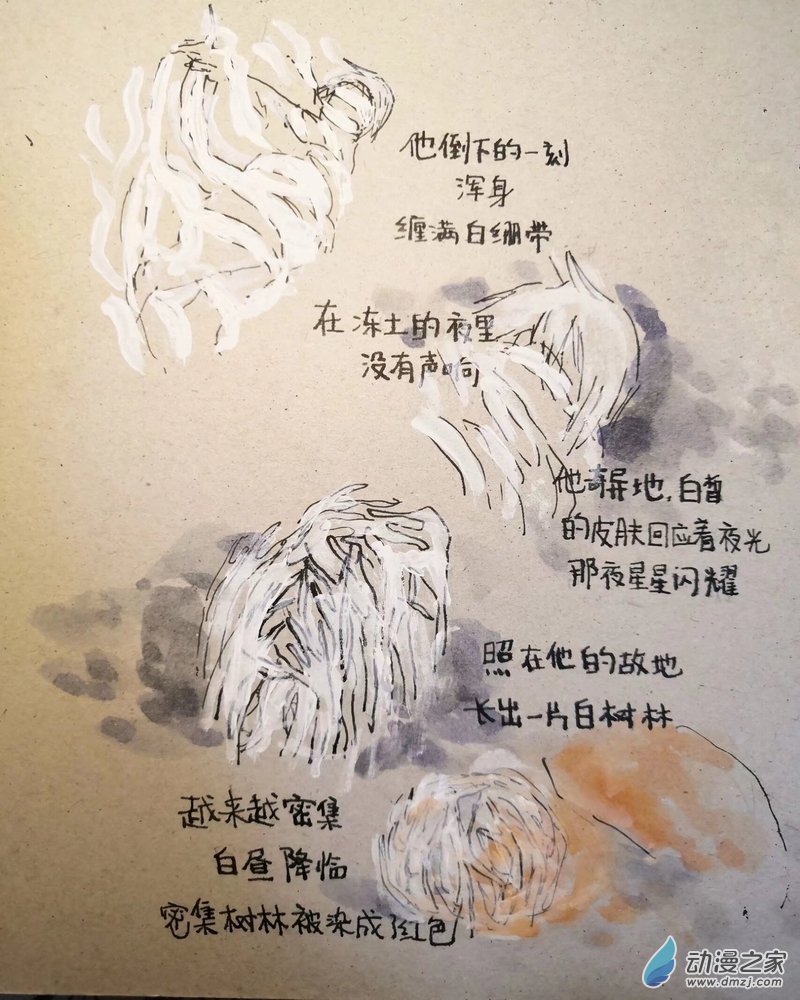 他倒下的一刻
浑身
缠满白绷带
在冻土的夜里
没有声响
他奇异地,白皙
的皮肤回应着夜光
那夜星星闪耀
照在他的故地
长出一片白树林
越来越密集
白昼降临
密集树林被染成了红色
动漫之家
www.dmzj.com